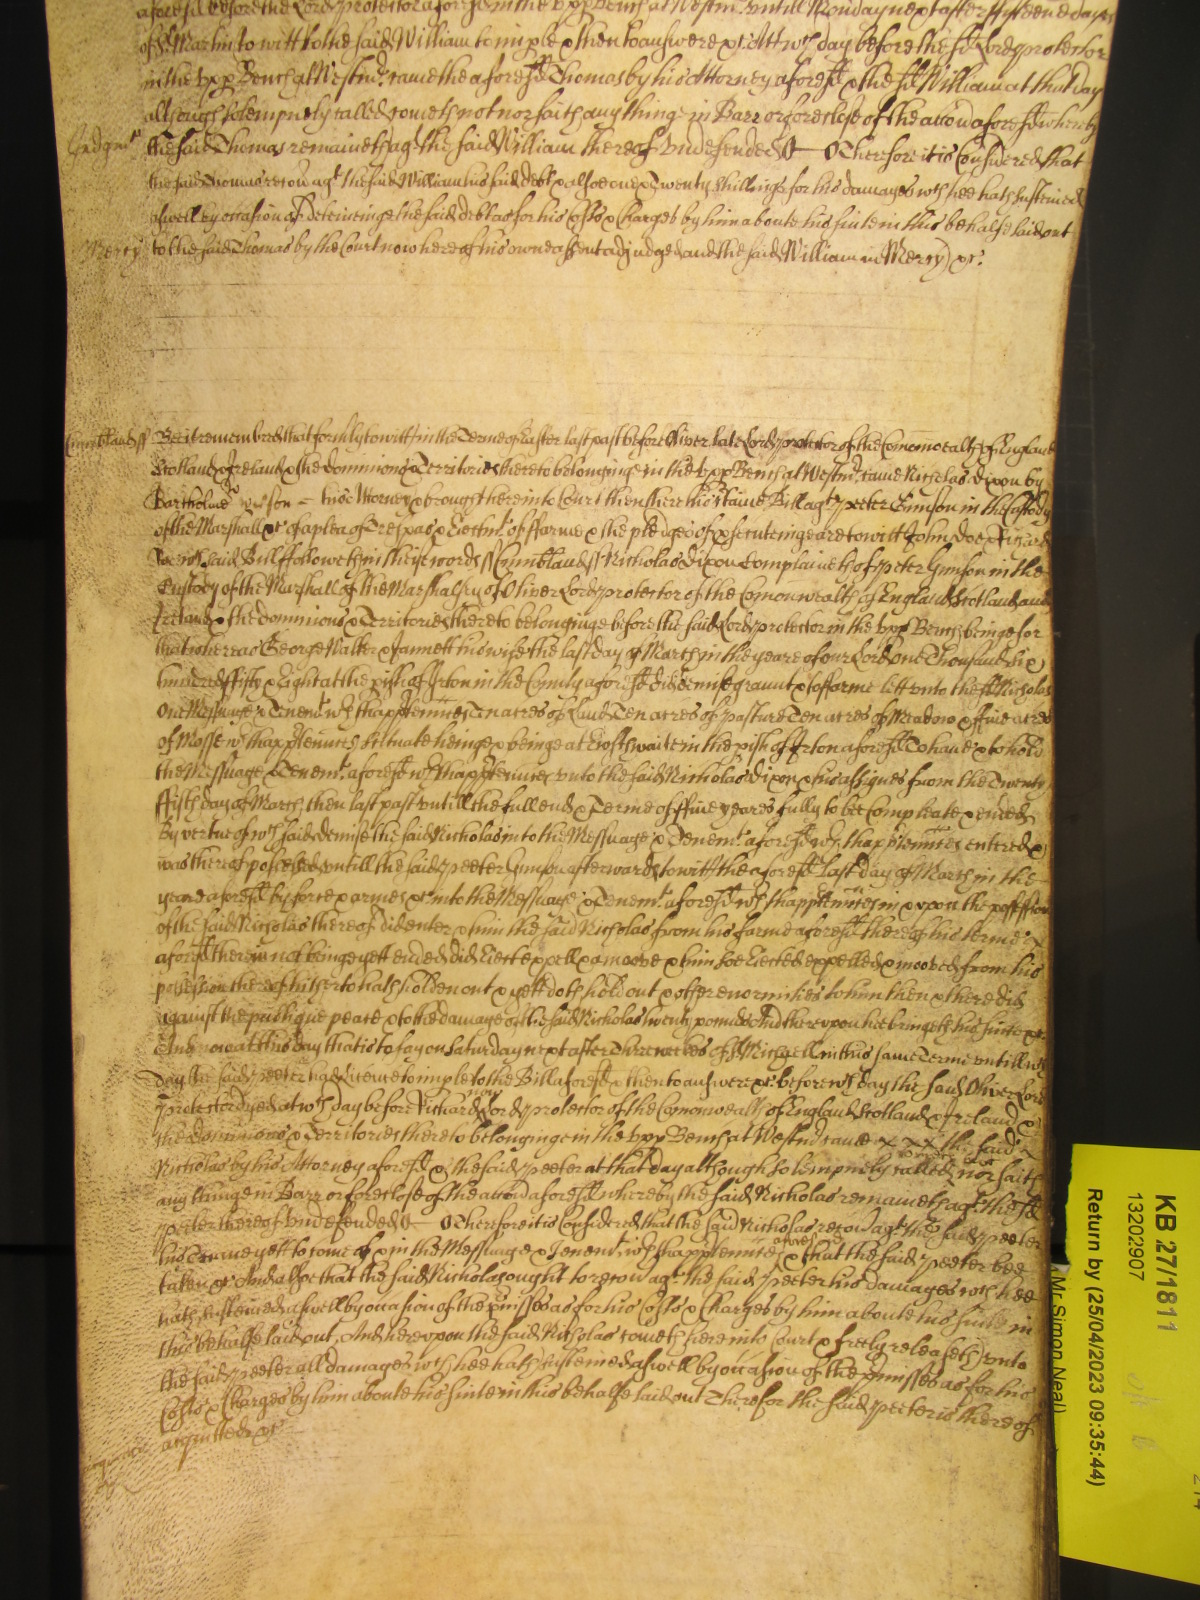 aforesd before the Lord protector aforesd in the vpp Bench at Westmr. vntill Monday next after fifteene dayes
of St Martin to witt to the said William to imple & then to answere &c Att wch day before the sd Lord protector
in the vpp Bench at Westmr. came the aforesd Thomas by his Attorney aforesd & the sd William at that day
although solempnely called cometh not nor saith any thinge in Barr or foreclose of the accon aforesd whereby
Judgmt the said Thomas remaineth agt the said William thereof vndefended Therefore it is Considered that
the said Thomas recou agt the said William his said debt & alsoe one & Twenty shillings for his damages wch hee hath susteined
aswell by occasion of deteineinge the said debt as for his Costs & Charges by him aboute his suite in this behalfe laid out
Mercy to the said Thomas by the Court now here of his owne assent adjudged and the said William in Mercy &c.
Cumbland ss Bee it remembred that formlly to witt in the Terme of Easter last past before Oliver late Lord protector of the Comonwealth of England
Scotland & Ireland & the dominions & Territories thereto belonginge in the vpp Bench at Westmr. came Nicholas dixon by
Bartholmew Wilson his Attorney & brought here into Court then there his Caine Bill agt peeter Gunson in the Custody
of the Marshall &c of a plea of Trespas & Eiectmt. of farme & the pledges of psecuteinge are to witt John Doe & Richard
Roe wch said Bill followeth in theise words ss Cumbland ss Nicholas dixon Complaineth of peter Gunson in the
Custody of the Marshall of the Marshalsey of Oliver Lord protector of the Comonwealth of England Scotland and
Ireland & the dominions & Territories thereto belonginge before the said Lord protector in the vpp Bench beinge for
that whereas George Walker & Jannett his wife the last day of March in the yeare of our Lord one Thousand six
hundred fifty & Eight at the pish of Irton in the County aforesd did demise graunt & to farme lett vnto the sd Nicholas
One Messuage & Tenemt wth thapptennces Ten acres of Land Ten acres of pasture Ten acres of Meadow & ffiue acres
of Mosse wth thapptennces scituate lieinge & beinge at in the pish of Irton aforesd To haue & to hold
the Messuage & Tenemt. aforesd wth thapptennces vnto the said Nicholas dixon & his assignes from the Twenty
ffifth day of March then last past vntill the full end & Terme of ffiue yeares fully to bee Compleate & ended
By vertue of wch said demise the said Nicholas into the Messuage & Tenemt. aforesd wth thapptennces entered &
was thereof possessed vntill the said peeter Gunson afterwards to witt the aforesd last day of March in the
yeare aforesd by force & armes &c into the Messuage & Tenemt. aforesd wth thapptennces in & vpon the possession
of the said Nicholas thereof did enter & him the said Nicholas from his farme aforesd thereof his terme
aforesd therein not beinge yett ended did Eiect expell & amoove & him soe Eiected expelled & mooved from his
possession thereof hitherto hath holden out & yett doth hold out & other enormities to him then & there did
against the publique peace & to the damage of the said Nicholas twenty pounds And therevpon hee bringeth his suite &c
And now at this day that is to say on Saturday next after Three weekes of St Michaell in this same Terme vntill wch
day the said peeter had licence to imple to the Bill aforesd & then to answere &c before wch day the said Oliver Lord
protector dyed at wch day before Richard now Lord protector of the Comonwealth of England Scotland & Ireland &
the dominions & Territories thereto belonginge in the vpp Bench at Westmr. came x x x the said
Nicholas by his Attorney aforesd & the said peeter at that day although solempnely called cometh not nor saith
any thinge in Barr or foreclose of the accon aforesd whereby the said Nicholas remaineth agt. the sd
peter thereof vndefended Therefore it is Considered that the said Nicholas recou agt the said peeter
his Terme yett to come of & in the Messuage & Tenemt. wth thapptennces aforesd & that the said peeter bee
taken &c And alsoe that the said Nicholas ought to recou agt. the said peeter his damages wch hee
hath susteined aswell by occasion of the pmisses as for his Costs & Charges by him aboute his suite in
this behalfe laid out, And herevpon the said Nicholas cometh here into Court & freely releaseth vnto
the said peeter all damages wch hee hath susteined aswell by occasion of the pmisses as for his
Costs & Charges by him aboute his suite in this behalfe laid out Therefor the said peeter is thereof
acquitted &c
KB 27/1811
13202907
Return by (25/04/2023 09:35:44)
Mr. Simon Neal)